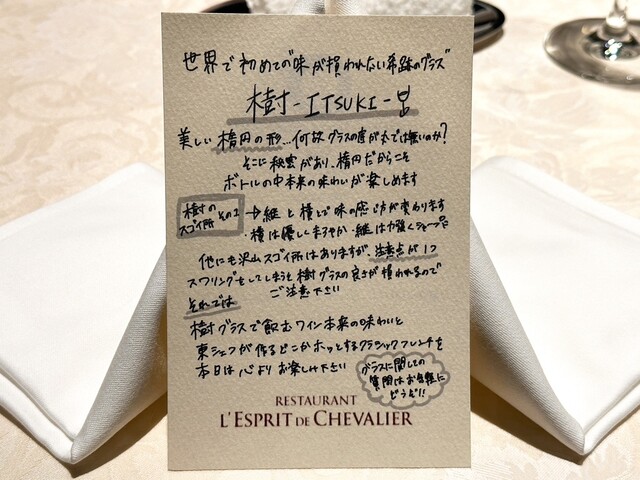 世界で初めての味が損われない奇跡のグラス
樹-ITSUKI-
美しい楕円の形…何故グラスの底が丸では無いのか?
そこに秘密があり、楕円だからこそ
ボトルの中本来の味わいが楽しめます
樹の
スゴイ所 その1
→縦と横とで味の感じ方が変わります
・横は優しくまろやか・縦は力強くシャープ
他にも沢山スゴイ所はありますが、注意点が1つ
スワリングをしてしまうと樹グラスの良さが損われるので
ご注意下さい
それでは
樹グラスで飲むワイン本来の味わいと
東シェフが作るどこかホッとするクラシックフレンチを
本日は心よりお楽しみ下さい
グラスに関しての
質問はお気軽に
どうぞ!!
RESTAURANT
L'ESPRIT DE CHEVALIER